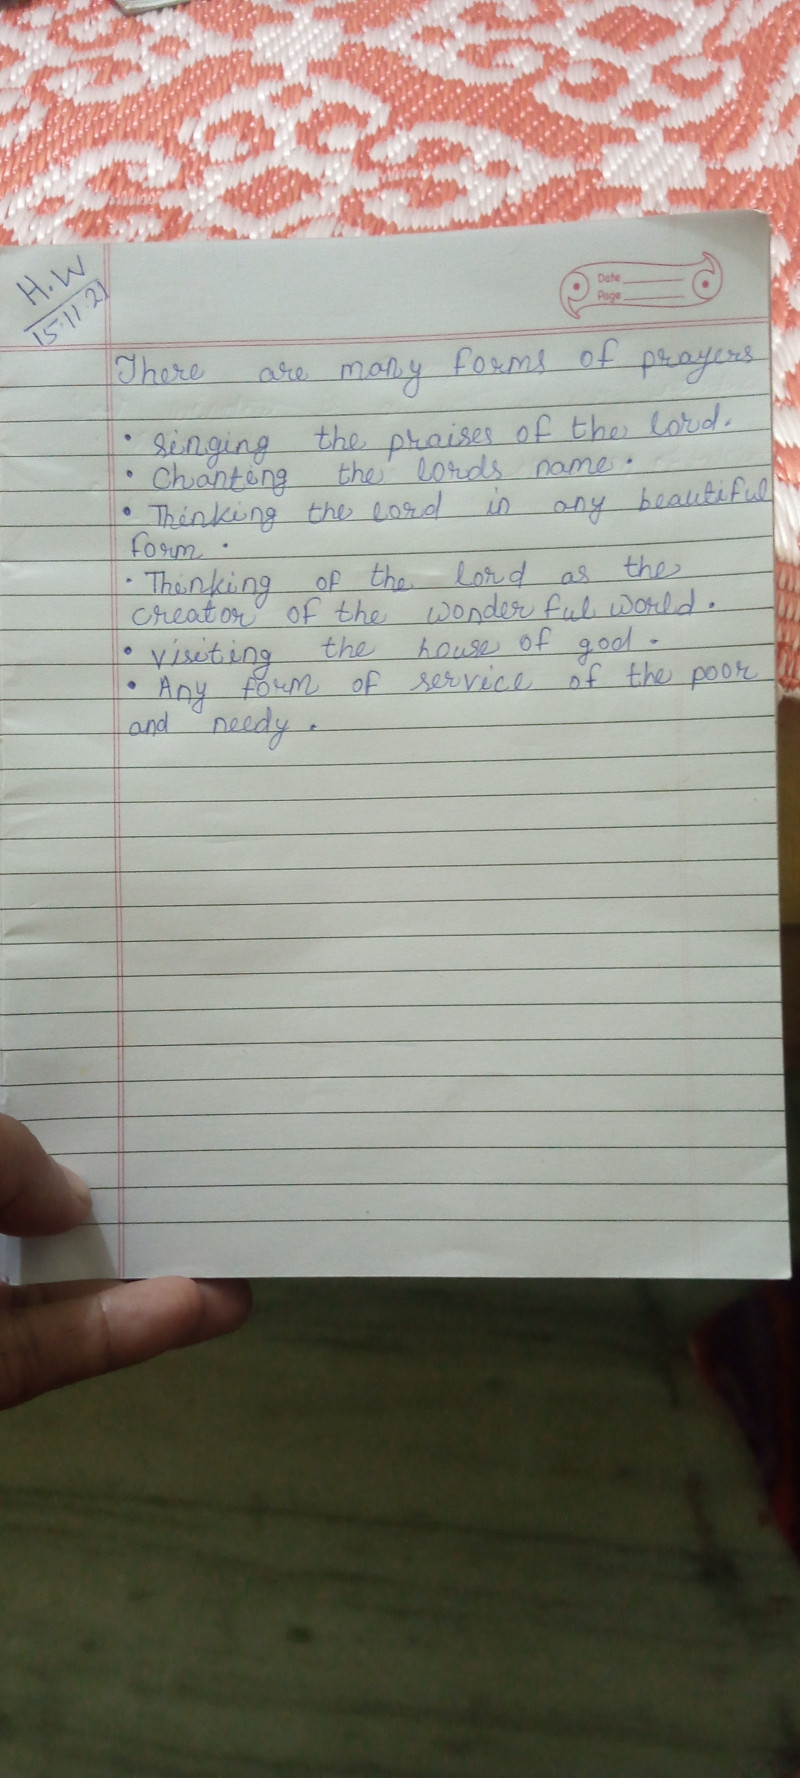 H.W
15.11.21
Date
Page
There are many forms of prayers
• singing the praises of the lord.
• Chanting the lords name.
• Thinking the lord in any beautiful
form.
• Thinking of the lord as the
creator of the wonderful world.
• visiting the house of god.
• Any form of service of the poor
and needy.